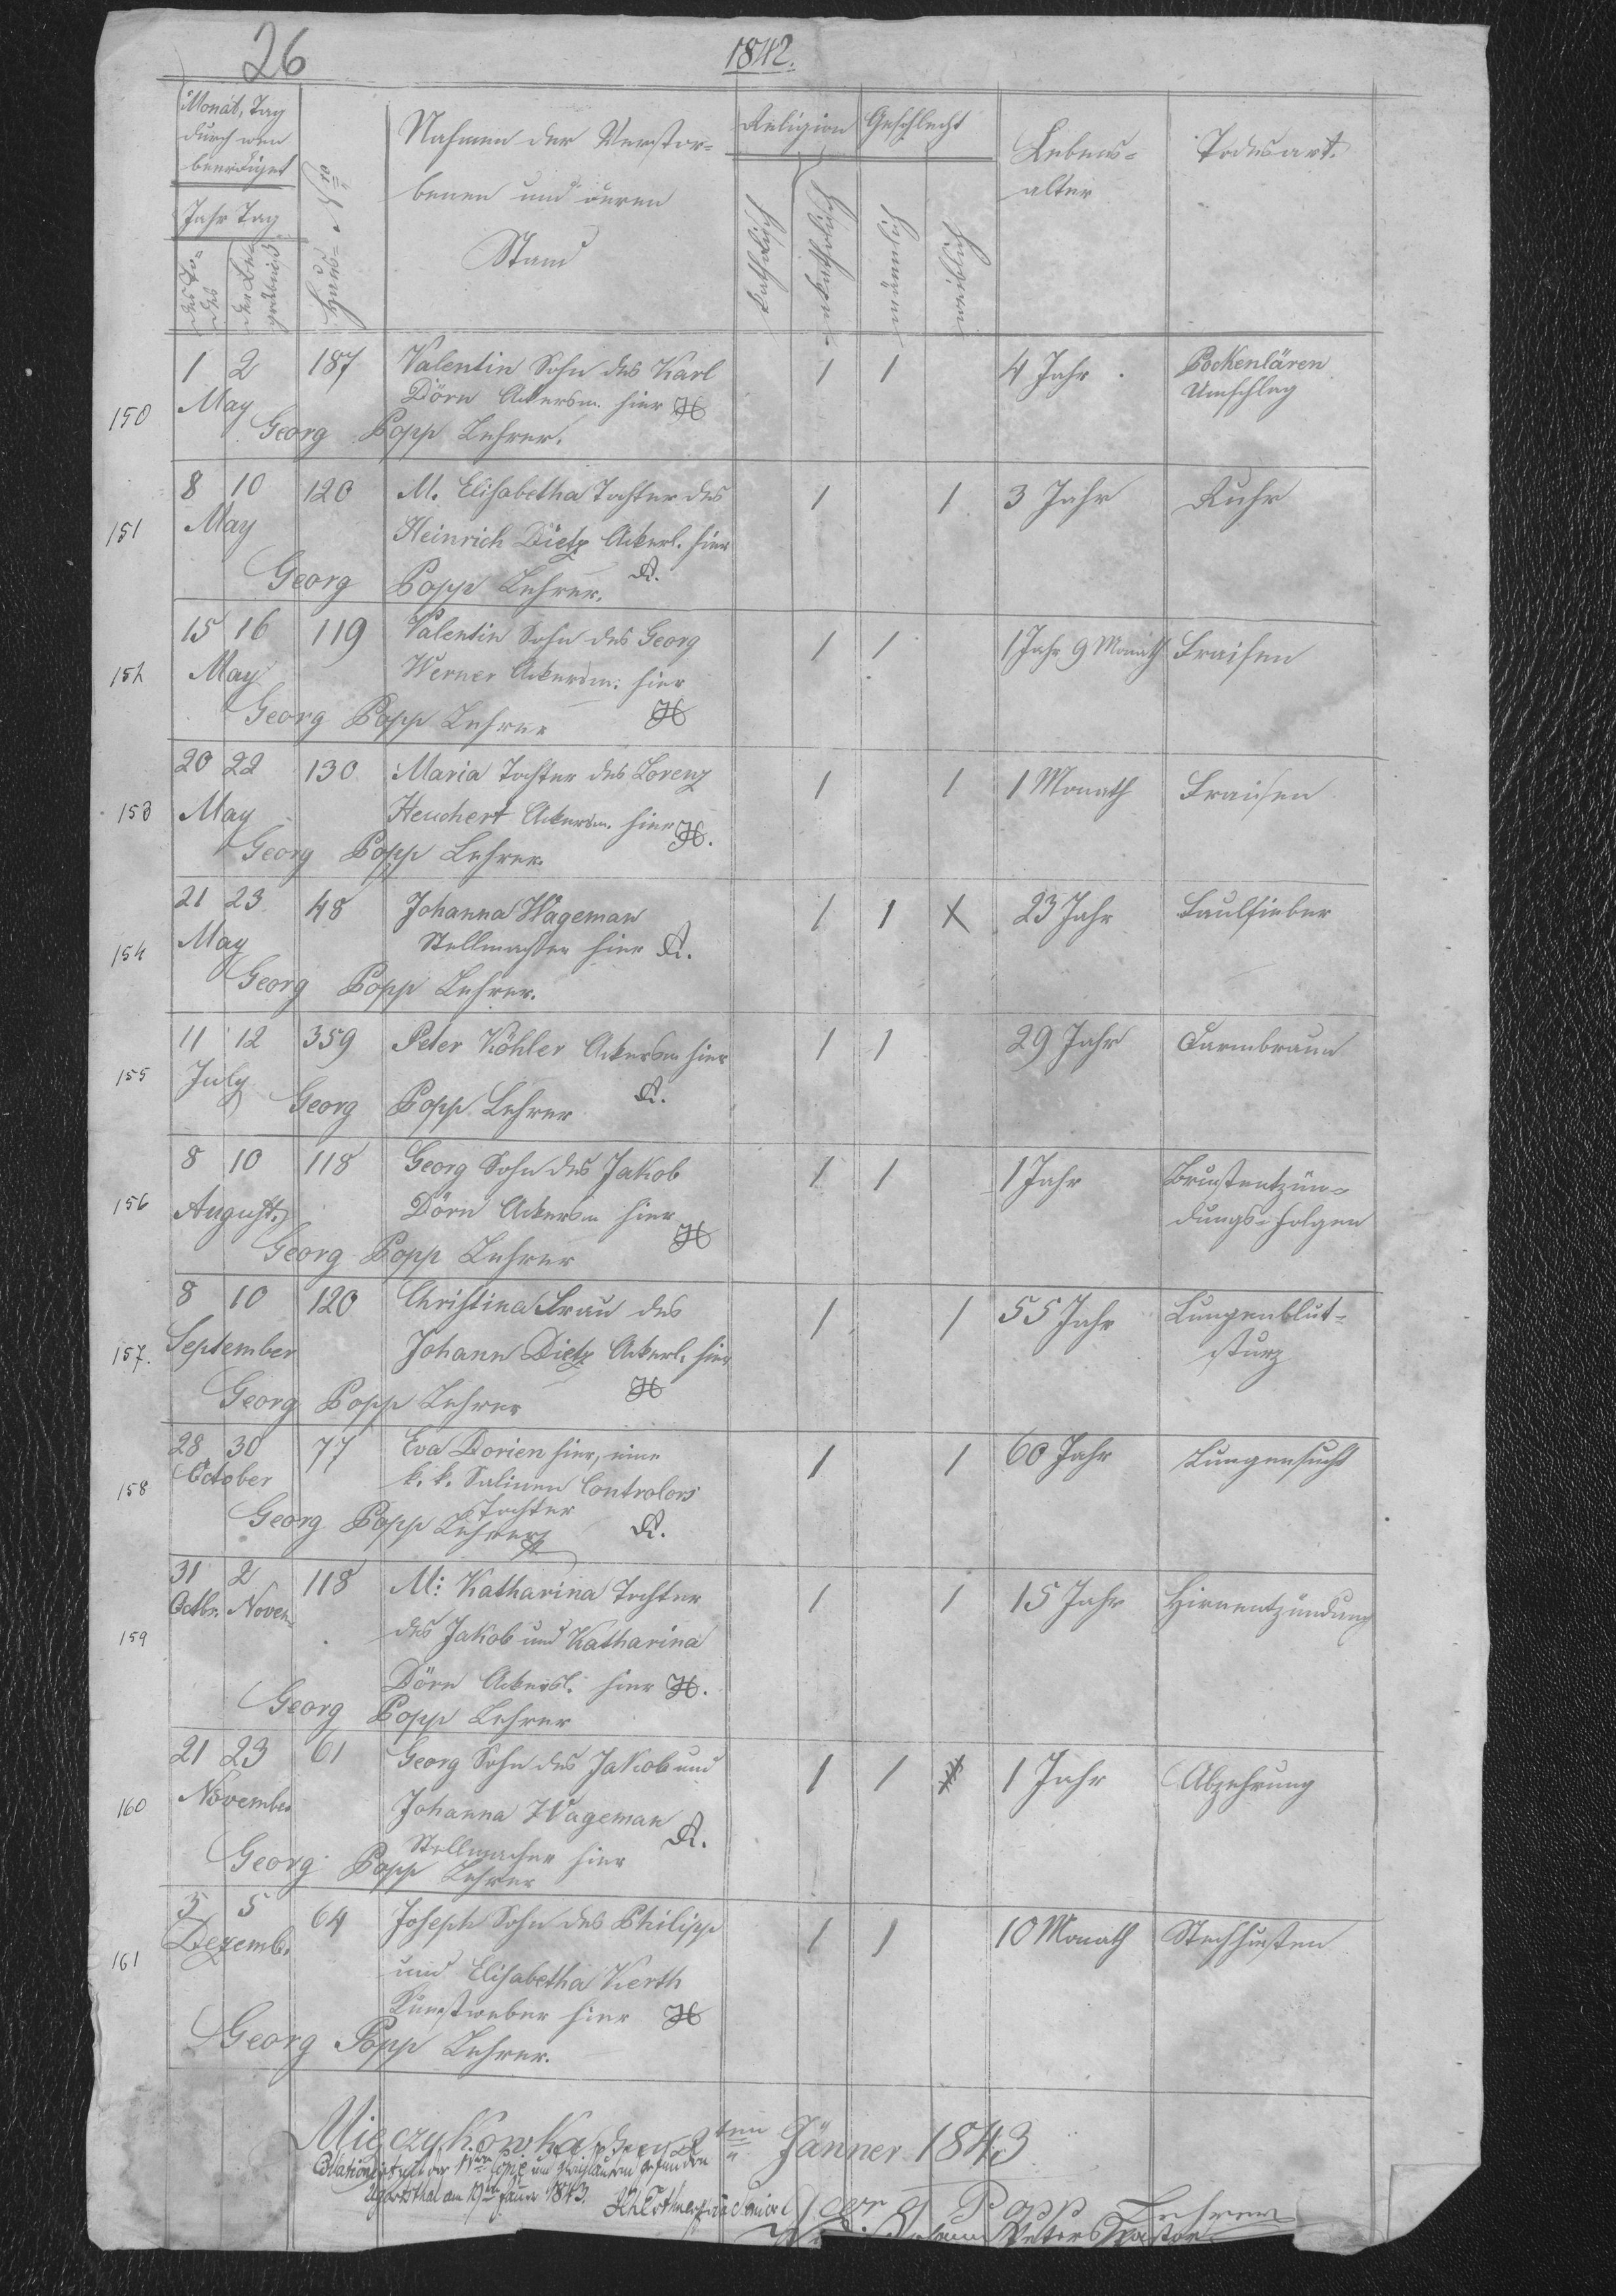 26
1842.
Monat, Tag
durch wen
beerdiget
Jahr Tag
des To=
des
der Be=
gräbniß
Haus= Nro
Nahmen der Verstor=
benen und deren
Stand
Religion
katholisch
akatholisch
Geschlecht
männlich
weiblich
Lebens=
alter
Todesart.
150
1 2 187 Valentin Sohn des Karl 1 1 4 Jahr. Pockenlären
May Dörn Ackersm. hier H Umschlag
Georg Popp Lehrer.
151
8 10 120 M. Elisabetha Tochter des 1 1 3 Jahr Ruhr
May Heinrich Dietz Ackerl. hier
Georg Popp Lehrer. R.
152
15 16 119 Valentin Sohn des Georg 1 1 1 Jahr 9 Monath Fraisen
May Werner Ackersm. hier
Georg Popp Lehrer H
153
20 22 130 Maria Tochter des Lorenz 1 1 1 Monath Fraisen
May Heuchert Ackersm. hier H.
Georg Popp Lehrer.
154
21 23 48 Johanna Wageman 1 1 X 23 Jahr Faulfieber
May Stellmacher hier R.
Georg Popp Lehrer.
155
11 12 359 Peter Köhler Ackersm hier 1 1 29 Jahr Darmbraun
July
Georg Popp Lehrer R.
156
8 10 118 Georg Sohn des Jakob 1 1 1 Jahr Brustentzün=
August. Dörn Ackersm hier dungs=folgen
Georg Popp Lehrer H
157.
8 10 120 Christina Frau des 1 1 55 Jahr Lungenblut=
September Johann Dietz Ackerl. hier sturz
Georg Popp Lehrer H
158
28 30 77 Eva Dorien hier, eine 1 1 60 Jahr Lungensucht
October k. k. Salinen Controlors
Tochter
Georg Popp Lehrer R.
159
31 2 118 M: Katharina Tochter 1 1 15 Jahr Hirnentzündung
Octbr. Novem.
des Jakob und Katharina
Dörn Ackersl. hier H.
Georg Popp Lehrer
160
21 23 61 Georg Sohn des Jakob und 1 1 1 Jahr Abzehrung
November Johanna Wageman R.
Stellmacher hier
Georg Popp Lehrer
161
3 5 64 Joseph Sohn des Philipp 1 1 10 Monath Stechhusten
Dezemb. und Elisabetha Kerth
Kunstweber hier H
Georg Popp Lehrer.
den 2ten Jänner 1843
Ugartsthal am Jänner 1843.
Georg Popp Lehrer